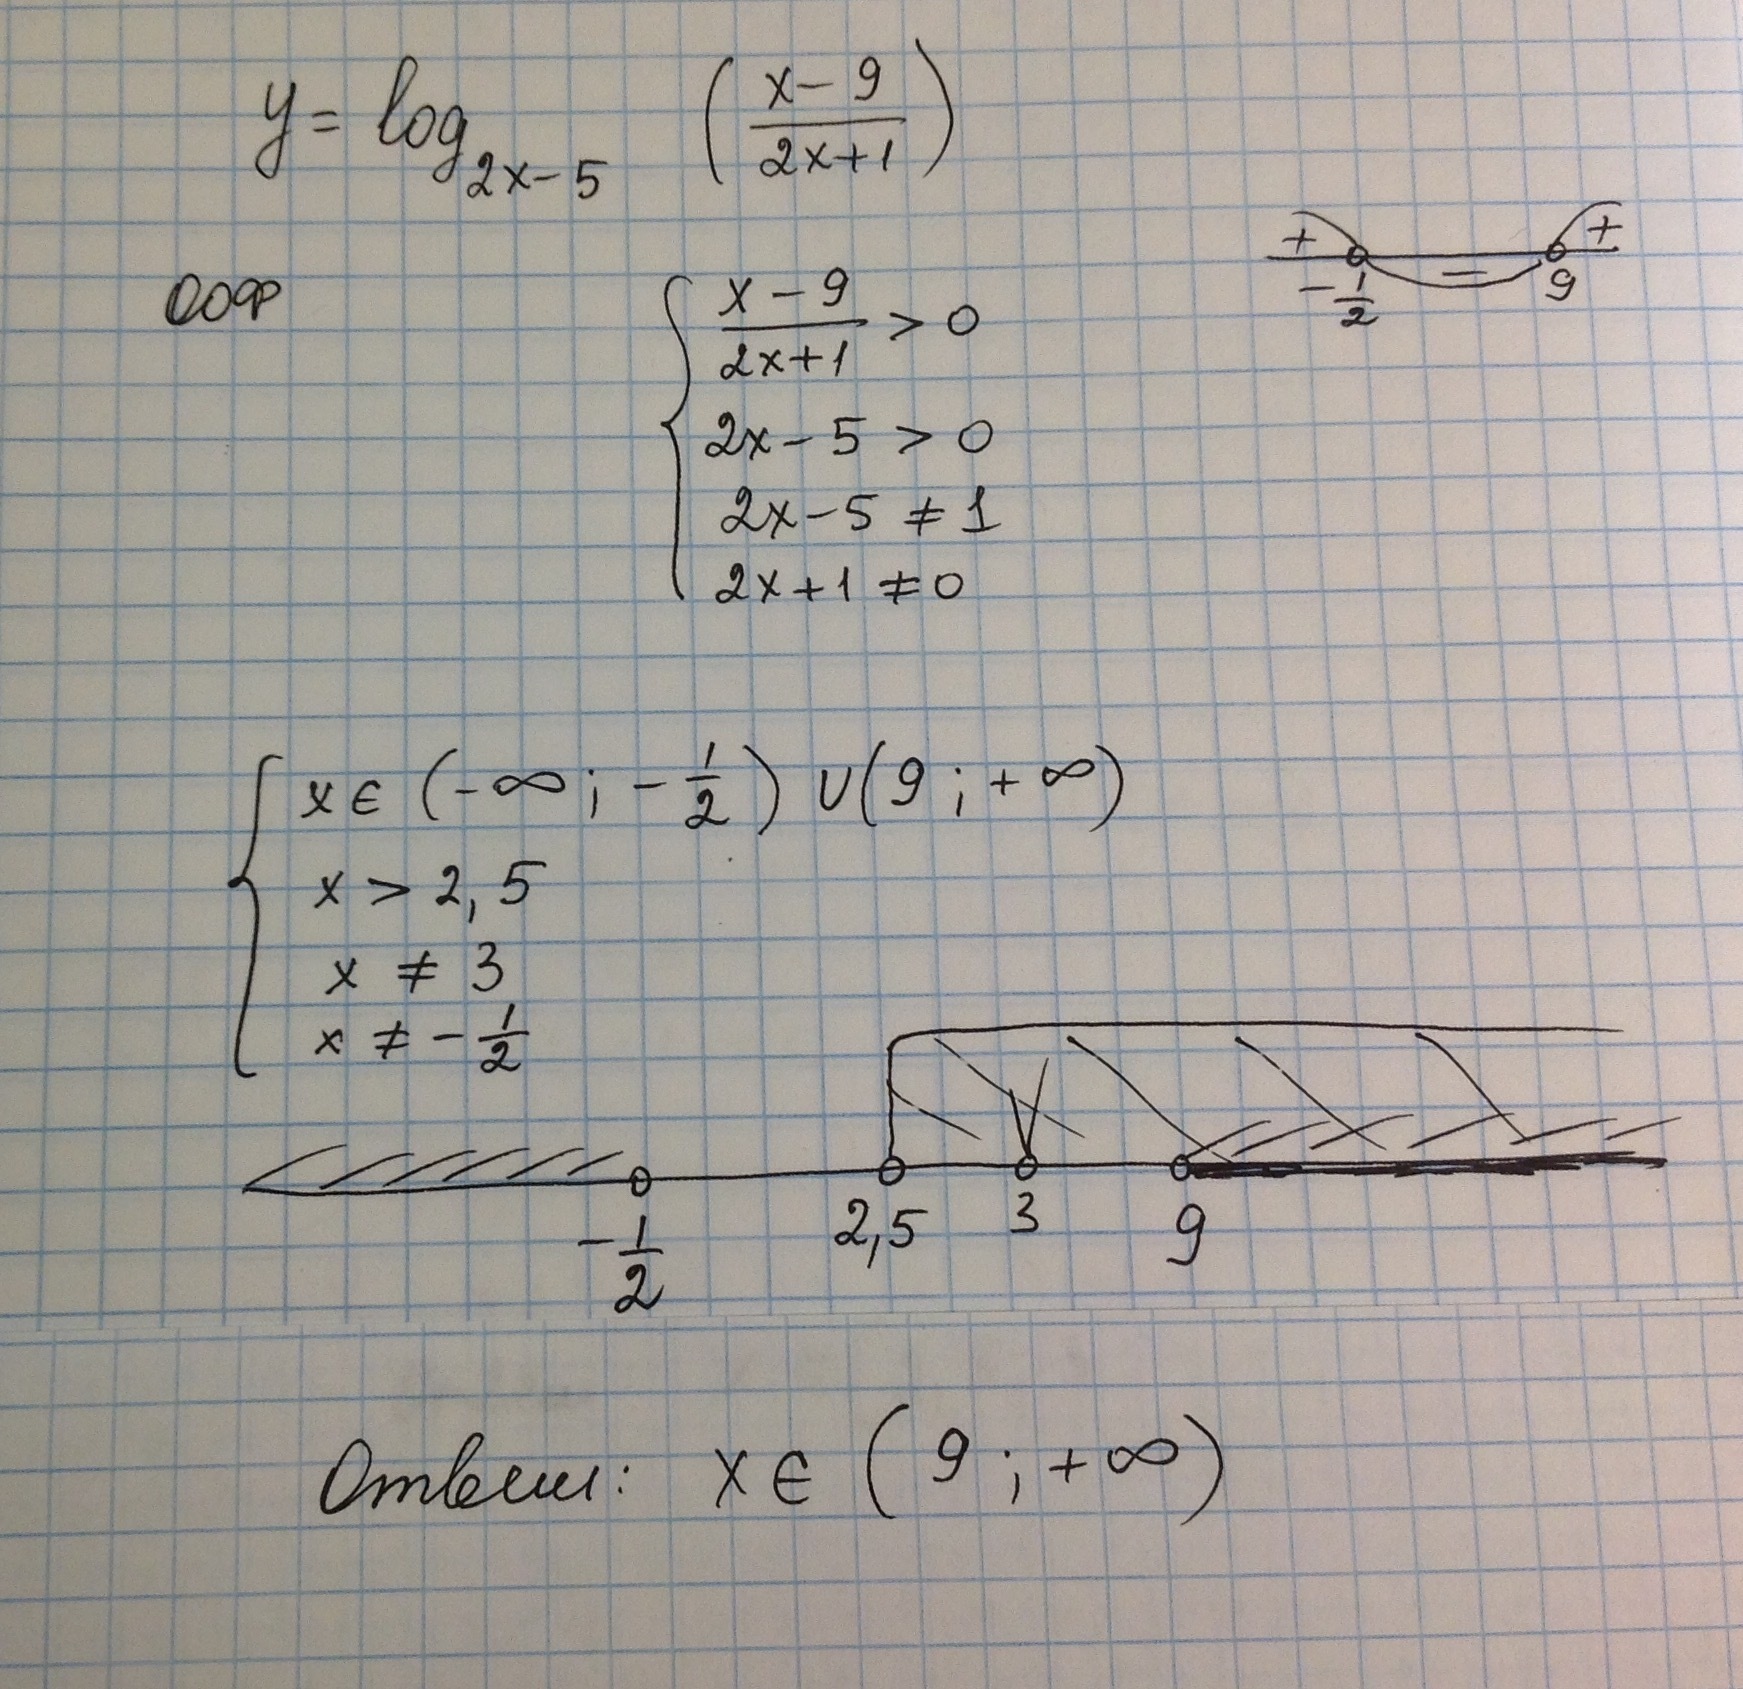 y = log_{2x-5} ((x-9)/(2x+1))
+ - +
-1/2 9
ООФ
{ (x-9)/(2x+1) > 0
2x-5 > 0
2x-5 ≠ 1
2x+1 ≠ 0
{ x ∈ (-∞; -1/2) ∪ (9; +∞)
x > 2,5
x ≠ 3
x ≠ -1/2
-1/2 2,5 3 9
Ответ: x ∈ (9; +∞)